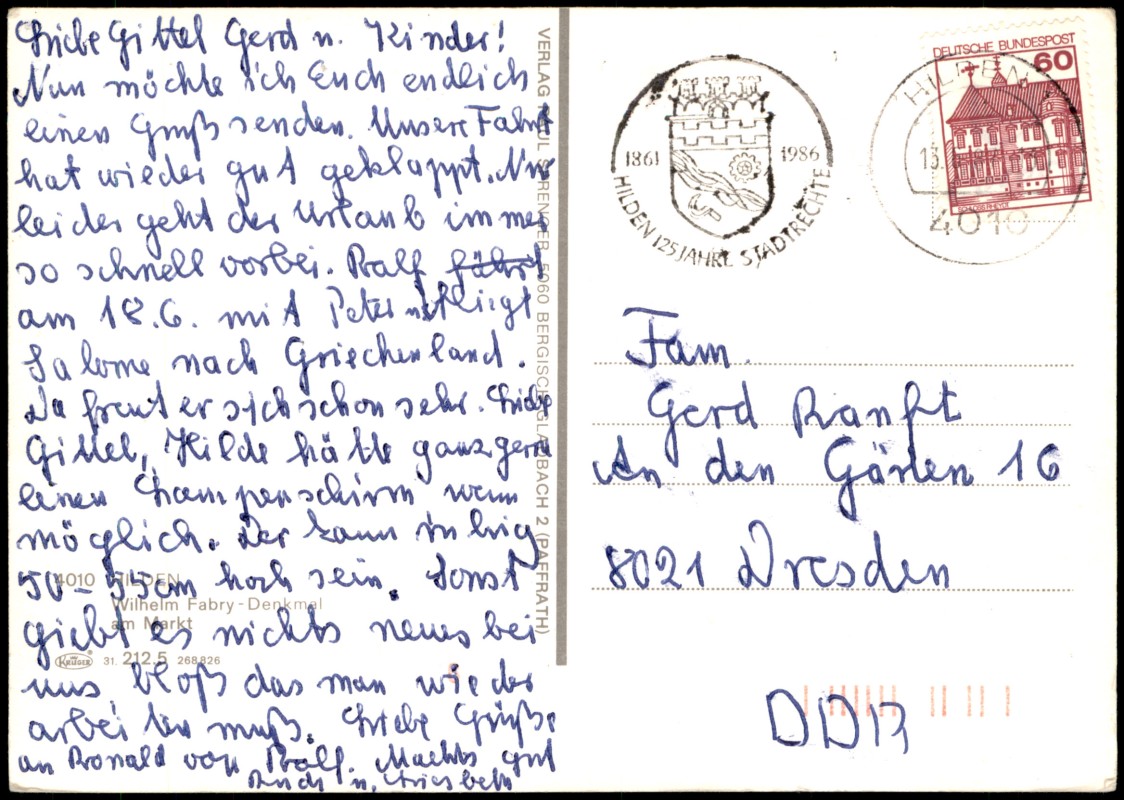 Liebe Gittel Gerd u. Kinder!
Nun möchte ich Euch endlich
einen Gruß senden. Unsere Fahrt
hat wieder gut geklappt. Nur
leider geht der Urlaub immer
so schnell vorbei. Ralf fährt
am 18.6. mit Peter fliegt
Salome nach Griechenland.
Da freut er sich schon sehr. Liebe
Gittel, Hilde hätte ganz gern
einen Lampenschirm wenn
möglich. Der kann ruhig
50-55cm hoch sein. Sonst
giebt es nichts neues bei
uns, bloß das man wieder
arbeiten muß. Liebe Grüße
an Ronald von Ralf. Machts gut
Rudi u. Liesbeth
4010 HILDEN
Wilhelm Fabry-Denkmal
am Markt
KRÜGER 31. 212.5 268826
VERLAG PAUL SPRENGER 5060 BERGISCH GLADBACH 2 (PAFFRATH)
1861 1986
HILDEN 125 JAHRE STADTRECHTE
HILDEN
13.
4010
DEUTSCHE BUNDESPOST
60
SCHLOSS RHEYDT
Fam.
Gerd Ranft
An den Gärten 16
8021 Dresden
DDR